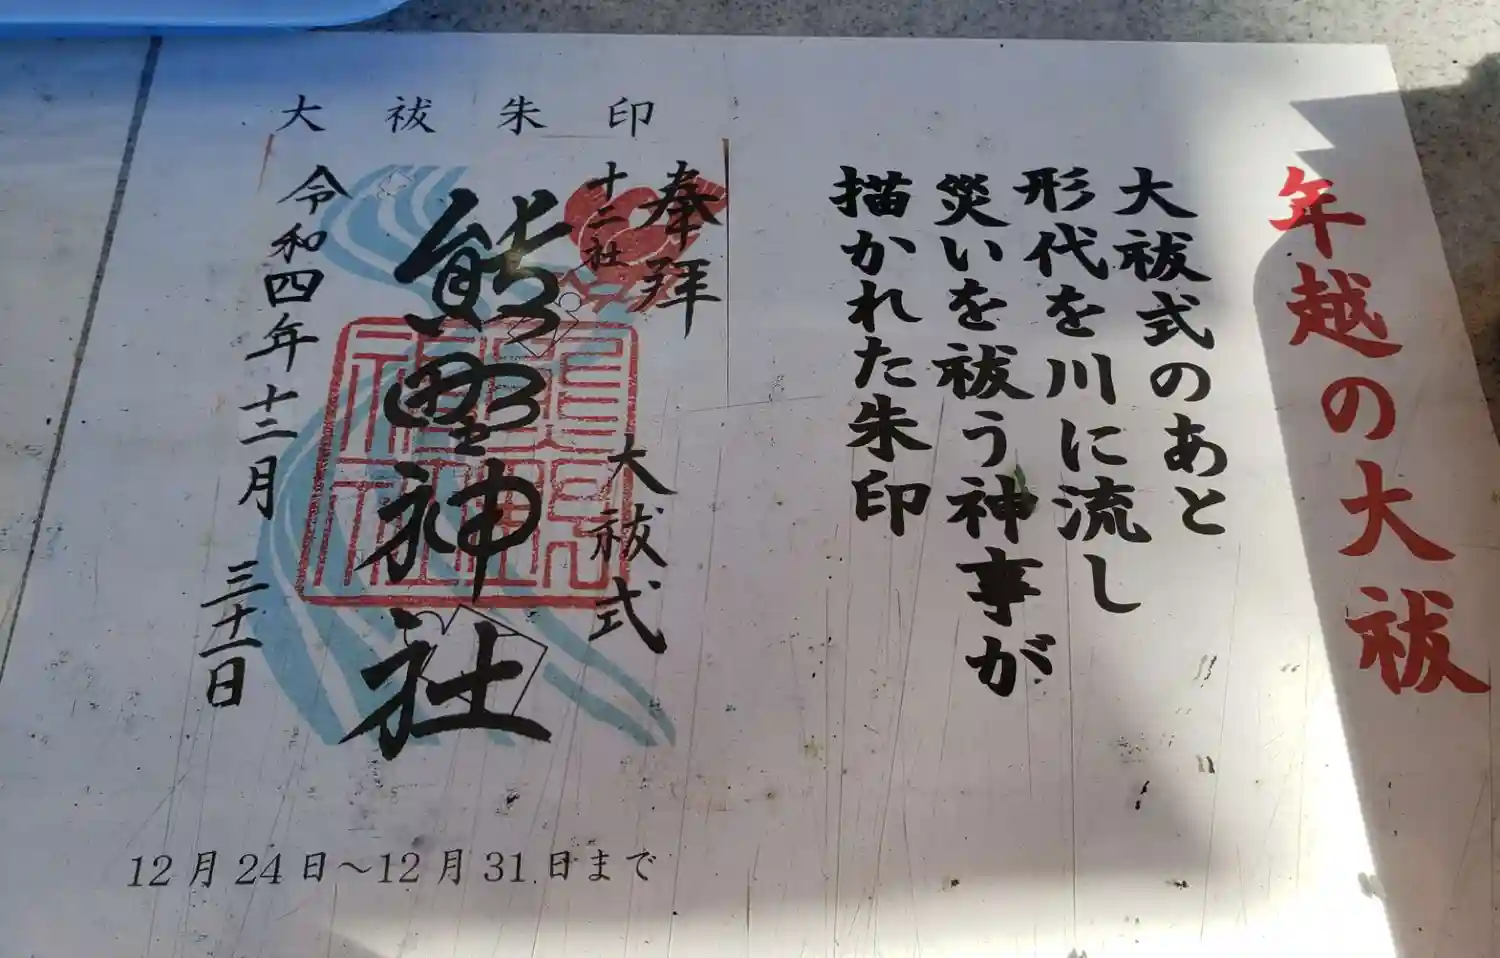 年越の大祓
大祓式のあと
形代を川に流し
災いを祓う神事が
描かれた朱印
大祓朱印
奉拝
十二社
大祓式
熊野神社
令和四年十二月
三十一日
12月24日～12月31日まで